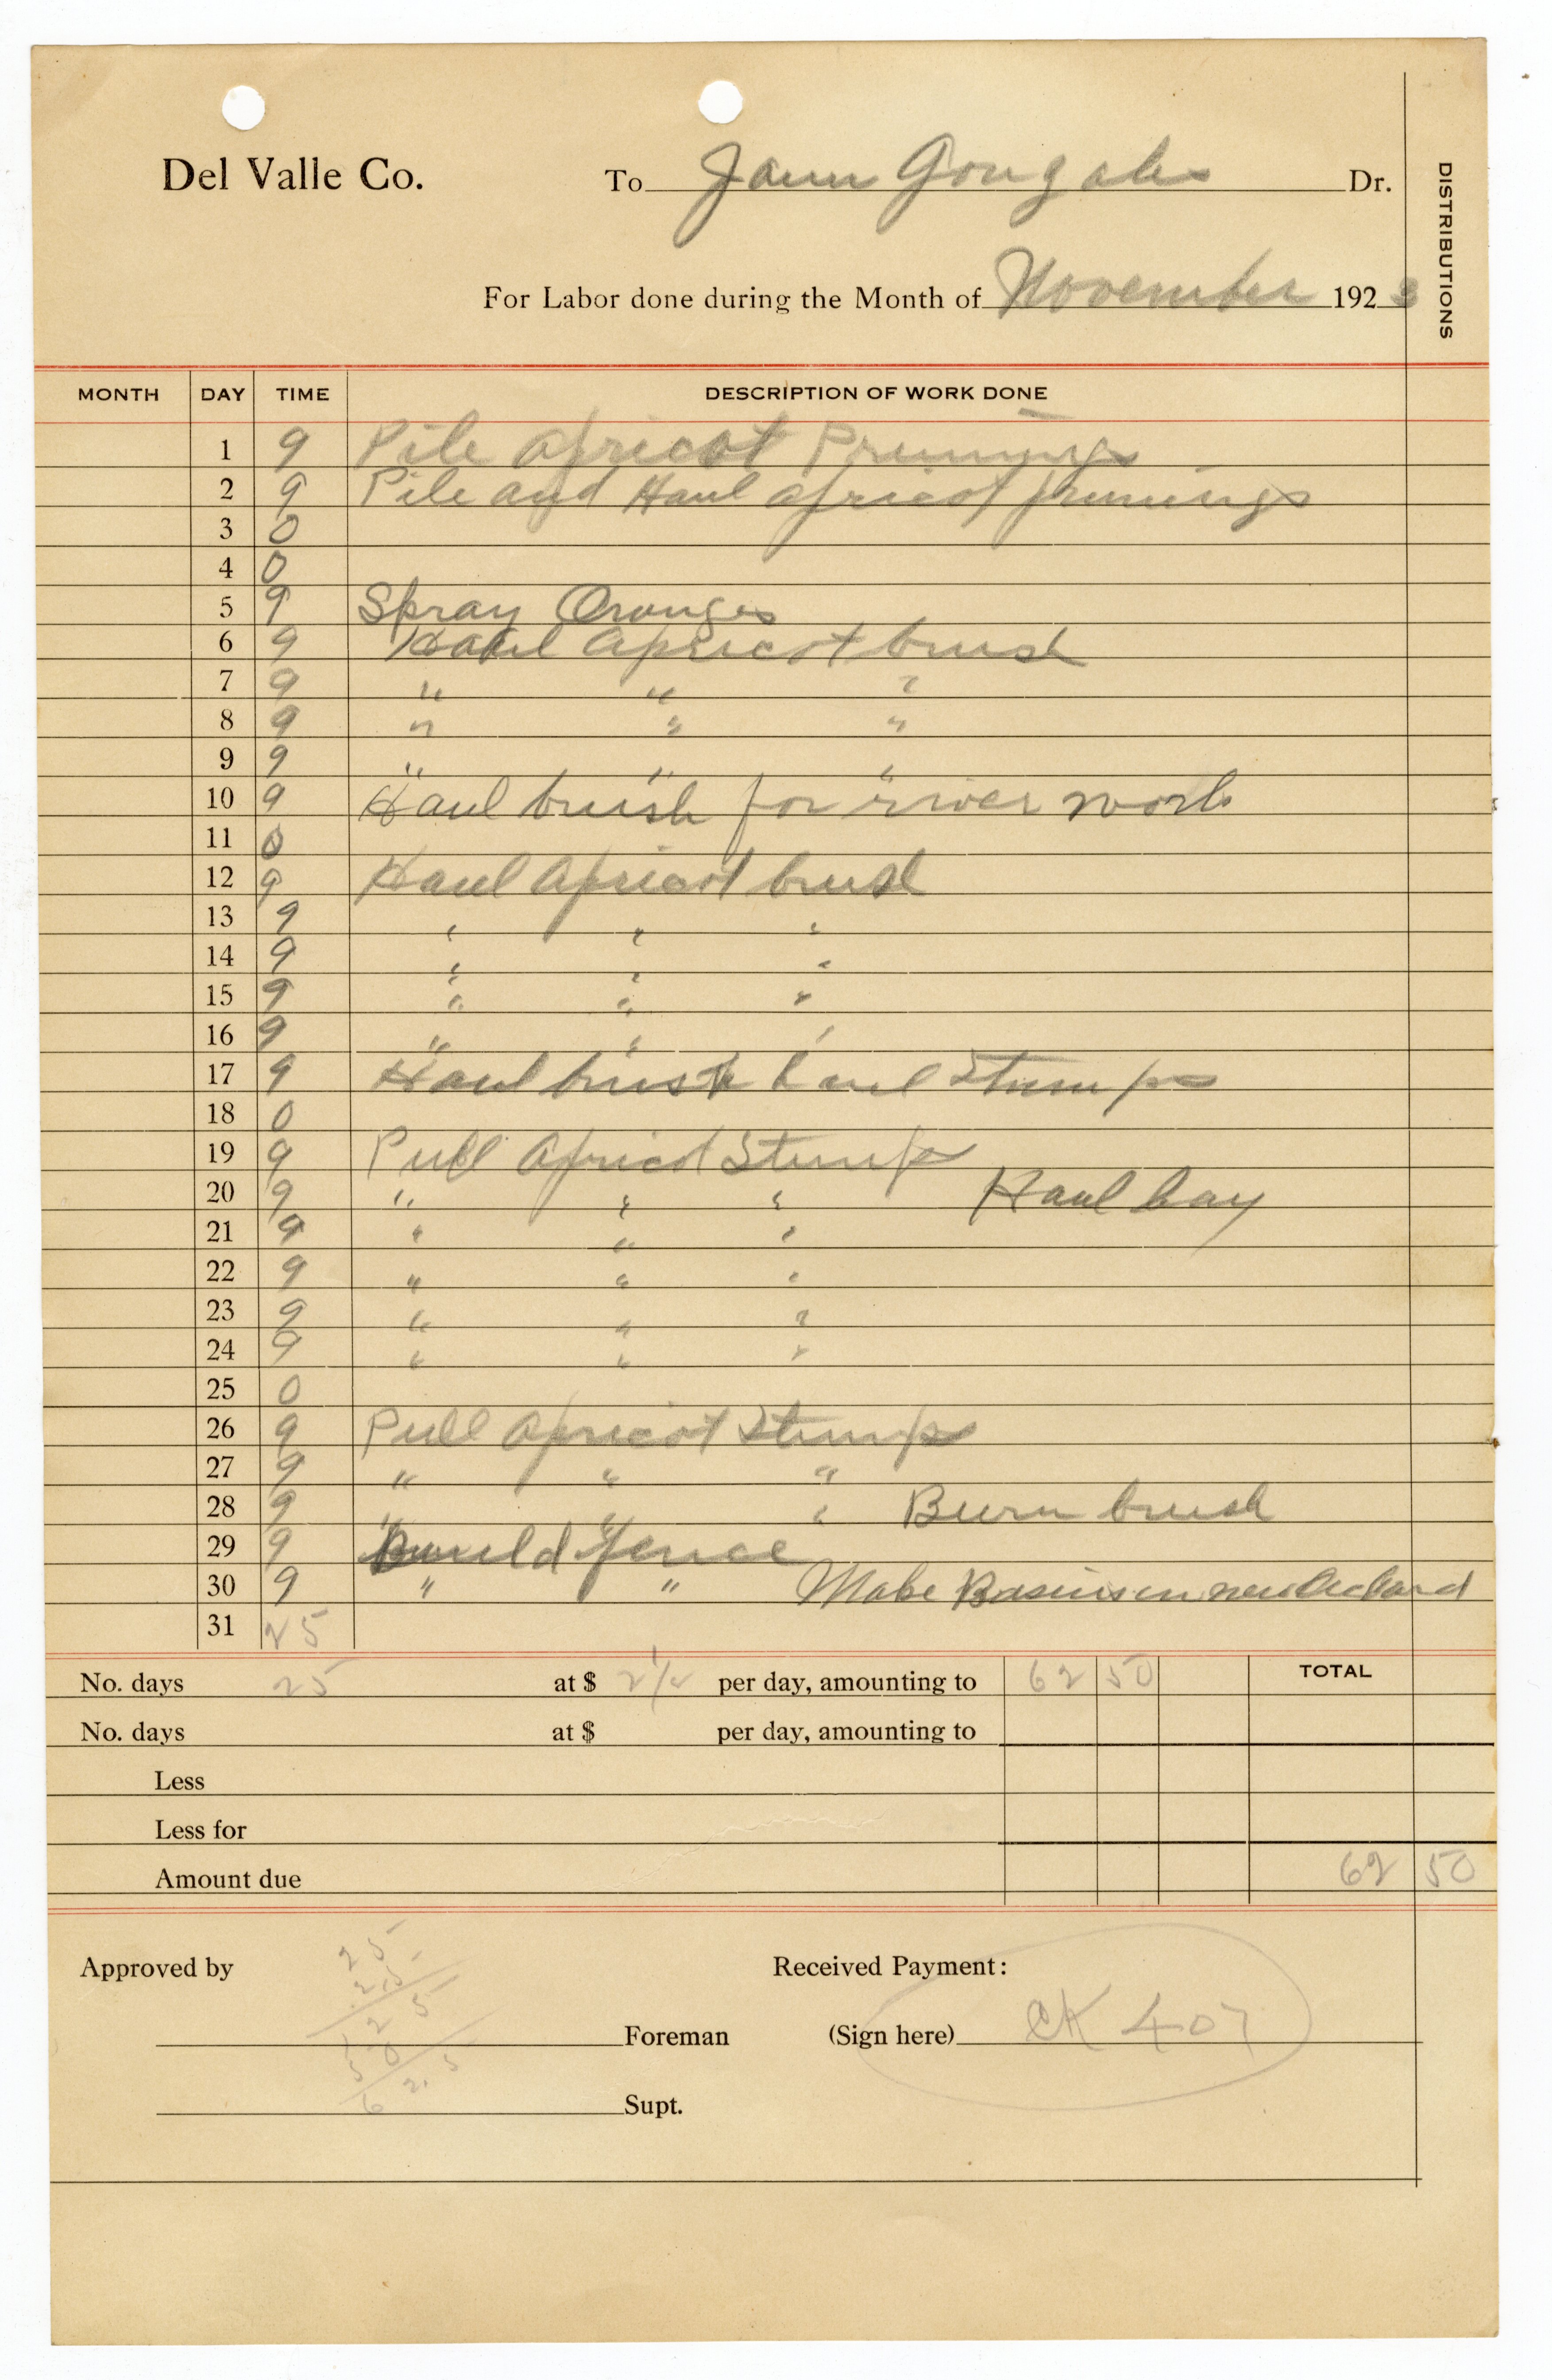 Del Valle Co. To Juan Gonzales Dr.
DISTRIBUTIONS
For Labor done during the Month of November 1923
MONTH DAY TIME DESCRIPTION OF WORK DONE
1 9 Pile apricot Prunings
2 9 Pile and Haul apricot prunings
3 0
4 0
5 9 Spray Oranges
6 9 Haul apricot brush
7 9 " " "
8 9 " " "
9 9 " " "
10 9 Haul brush for river work
11 0
12 9 Haul apricot brush
13 9 " " "
14 9 " " "
15 9 " " "
16 9 " " "
17 9 Haul brush haul Stumps
18 0
19 9 Pull apricot Stumps
20 9 " " " Haul hay
21 9 " " "
22 9 " " "
23 9 " " "
24 9 " " "
25 0
26 9 Pull apricot Stumps
27 9 " " "
28 9 " " " Burn brush
29 9 Build fence
30 9 " " Make Basins in new Orchard
31 25
No. days 25 at $ 2 1/2 per day, amounting to 62 50 TOTAL
No. days at $ per day, amounting to
Less
Less for
Amount due 62 50
Approved by Received Payment:
25
2.5
125
50
62.5
Foreman (Sign here) CK 407
Supt.